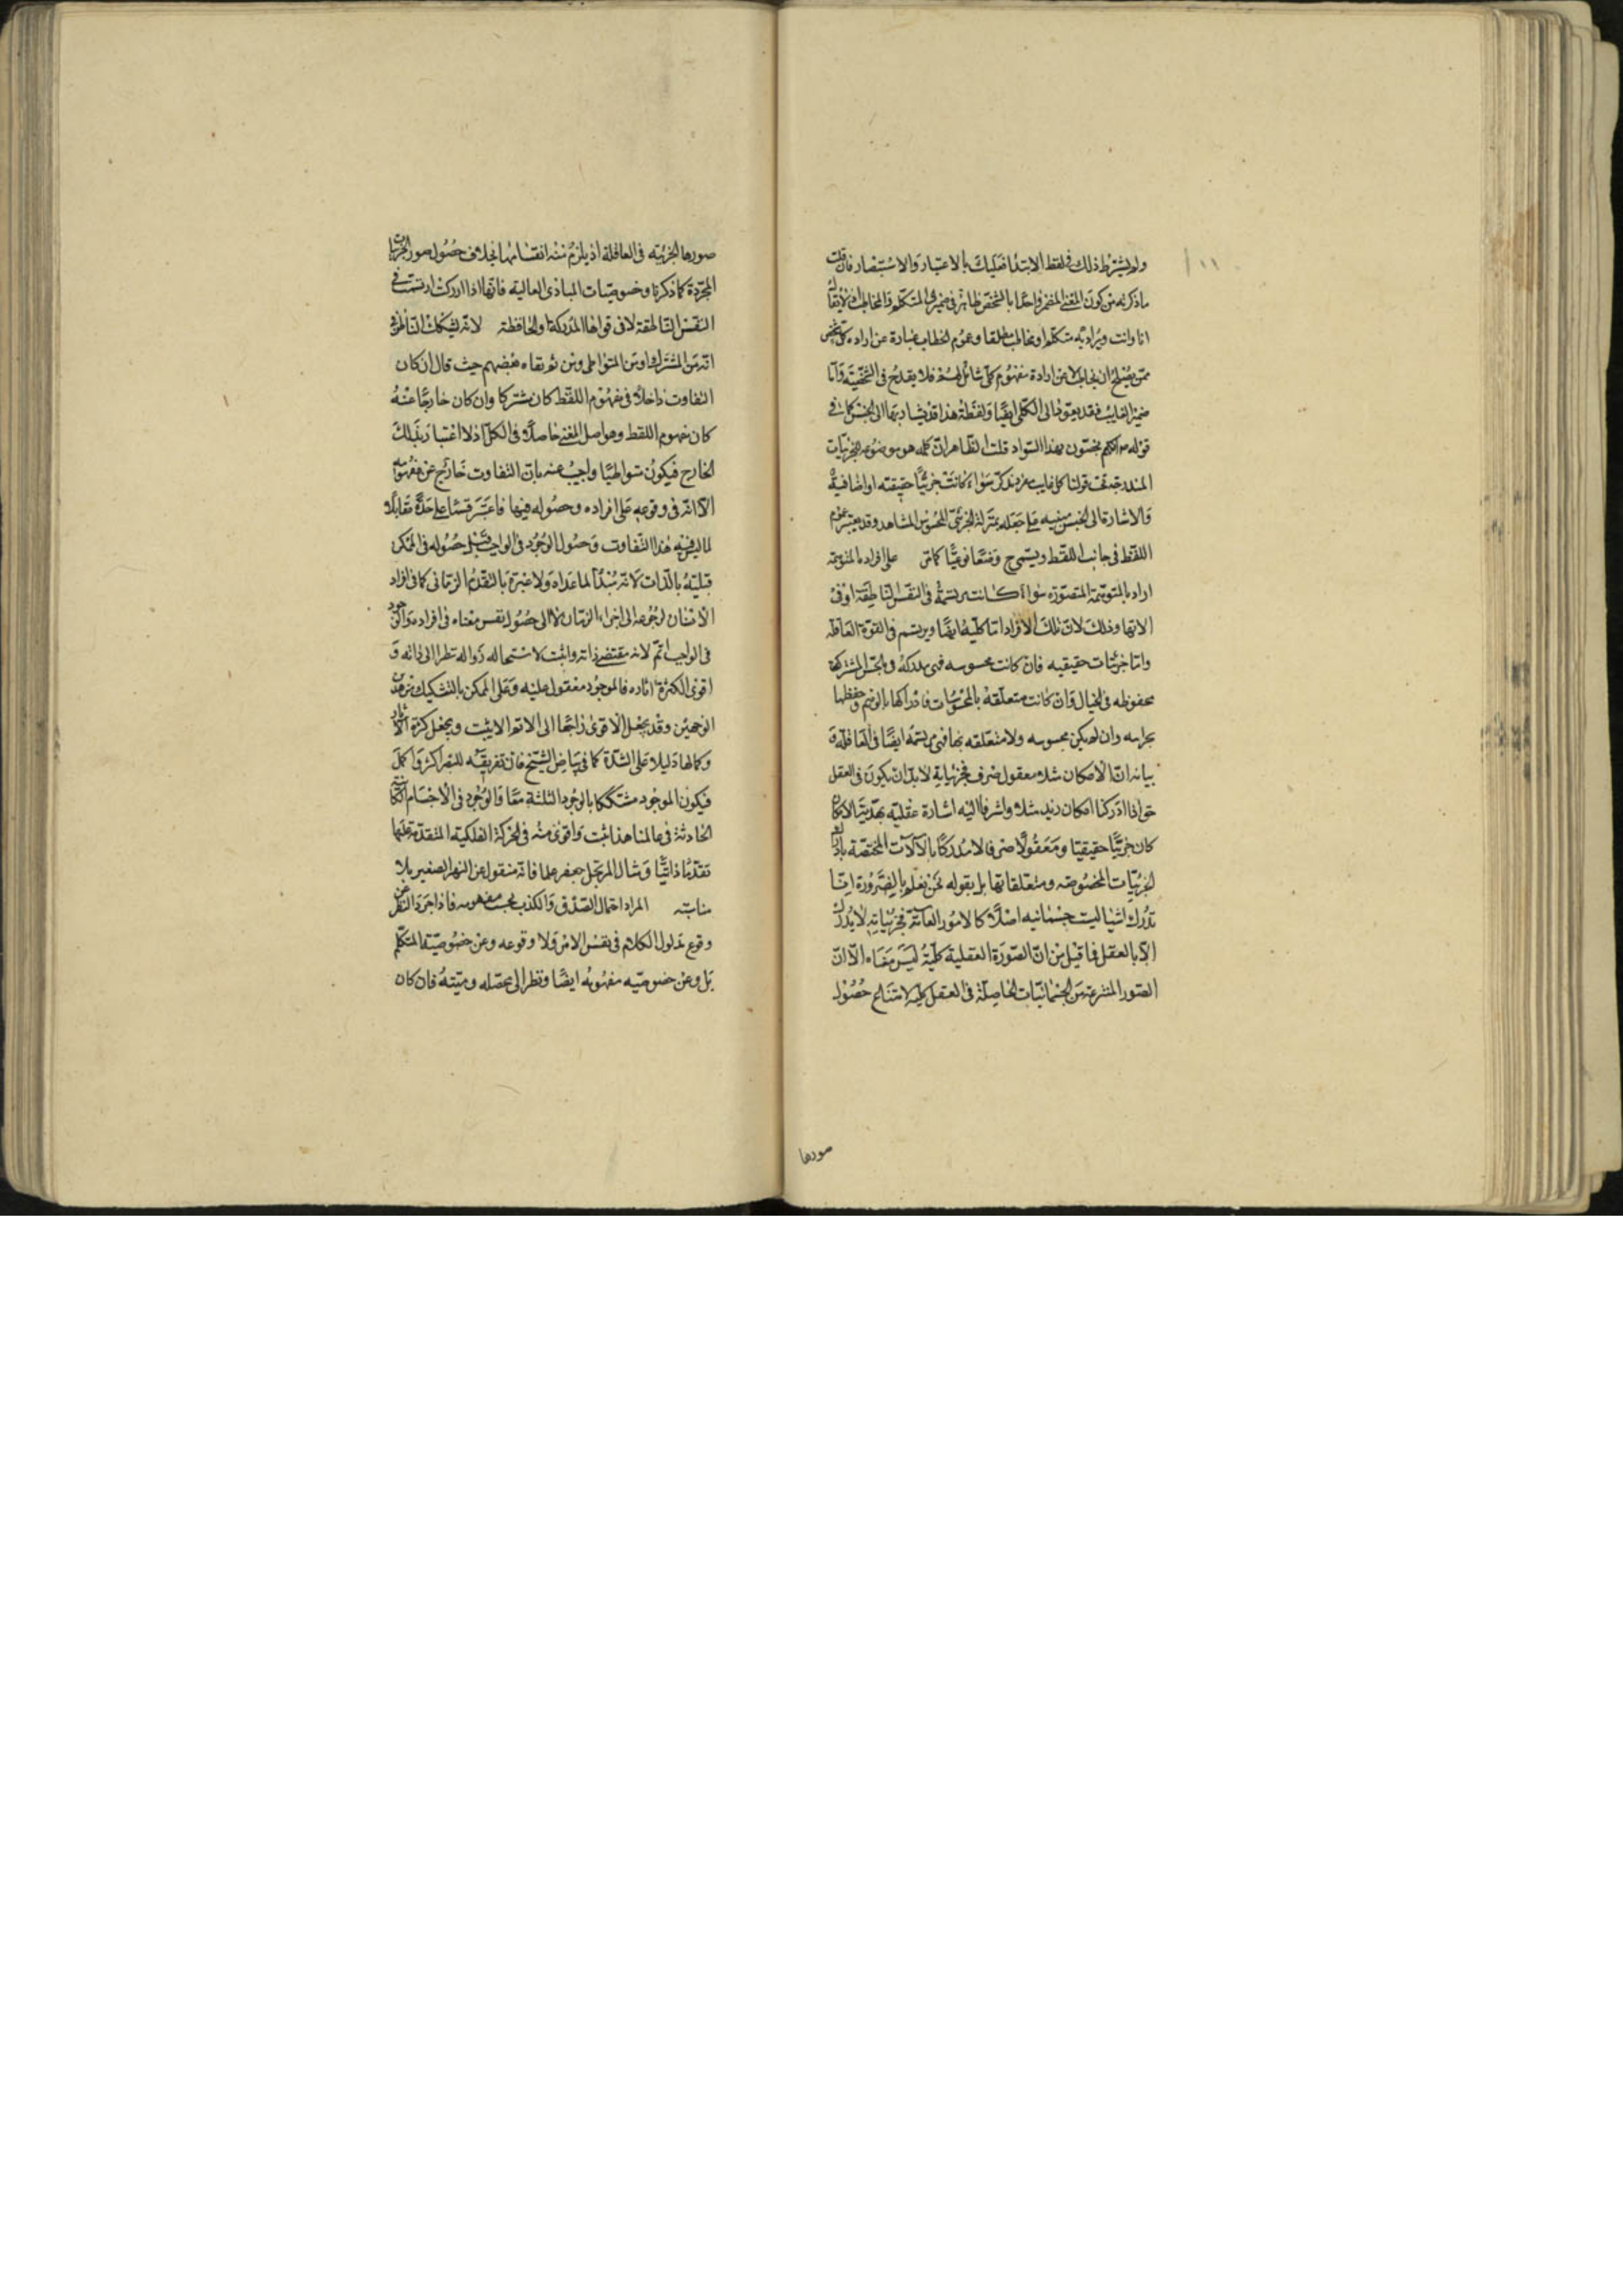 ولم يشترط ذلك في لفظ الابتداء فعليك بالاعتبار والاستبصار فان قلت
ما ذكرته من كون المعنى المضمر واحدا بالشخص ظاهر في ضميري المتكلم والمخاطب اذ لا يقال
انا وانت ويراد به متكلم او مخاطب مطلقا وعموم الخطاب عبارة عن ارادة كل شخص
ممن يصلح ان يخاطب لا عن ارادة مفهوم كلي شامل لهم فلا يقدح في الشخصية واما
ضمير الغايب فقد يعود الى الكلي ايضا ولفظة هذا قد يشار بها الى الجنس كما في
قوله بهذا السواد قلت الظاهر ان كلمة هو موضوعه للجزئيات
المندرجة تحت قولنا كل غايب مفرد مذكر سواء كانت جزئيا حقيقته او اضافية
والاشارة الى الجنس مبنيه على جعله بمنزلة الجزئي المحسوس المشاهد وقد يعتبر عموم
اللفظ في جانب اللفظ ويسمى ح وضعا نوعيا كما مر على افراده المتوهمة
اراد بالمتوهمة المتصورة سواء كانت مرتسمة في النفس الناطقة او في
الاتها وذلك لان تلك الافراد اما كلية ايضا ويرتسم في القوة العاقله
واما جزئيات حقيقيه فان كانت محسوسه فهي مدركة في الحس المشترك
محفوظه في الخيال وان كانت متعلقة بالمحسوسات فادراكها بالوهم وحفظها
بخزانته وان لم يكن محسوسه ولا متعلقه بها فهي مرتسمة ايضا في العاقلة و
بيانه ان الامكان مثلا معقول صرف فجزئياته لا بد ان يكون في العقل
حتى اذا ادركنا امكان زيد مثلا واشرنا اليه اشارة عقلية بهذية الامكان
كان جزئيا حقيقيا ومعقولا صرفا لا مدركا بالآلات المختصة بادراك
الجزئيات المخصوصه ومتعلقاتها بل بقوله نحن نعلم بالضرورة انا
ندرك اشيا ليست جسمانيه اصلا كالامور العامة فجزئياته لا يدرك
الا بالعقل فما قيل من ان الصورة العقلية كلية ليس معناه الا ان
الصور المنتزعة من الجسمانيات الحاصلة في العقل كلية لامتناع حصول
صورها
صورها الجزئية في العاقلة اذ يلزم منه انقسامها بخلاف حصول صور الجزئيات
المجردة كما ذكرنا وخصوصيات المبادي العالية فانها اذا ادركت ارتسمت في
النفس الناطقة لا في قواها المدركة والحافظة لانه يشكك الناظر في
انه من المشترك او من المتواطي ومن ثم نفاه بعضهم حيث قال ان كان
التفاوت داخلا في مفهوم اللفظ كان مشتركا وان كان خارجا عنه
كان مفهوم اللفظ وهو اصل المعنى حاصلا في الكل اذ لا اعتبار بذلك
الخارج فيكون متواطيا واجيب عنه بان التفاوت خارج عن مفهومه
الا انه في وقوعه على افراده وحصوله فيها فاعتبر قسما على حدة مقابلا
لما ليس فيه هذا التفاوت وحصول الوجود في الواجب قبل حصوله في الممكن
قبلية بالذات لانه مبدأ لما عداه ولا عبرة بالتقدم الزماني كما في افراد
الانسان لرجوعه الى اجزاء الزمان لا الى حصول نفس معناه في افراده والوجود
في الواجب اتم لانه مقتضى ذاته واثبت لاستحاله زواله نظرا الى ذاته و
اقوى لكثرة اثاره فالموجود مقول عليه وعلى الممكن بالتشكيك من هذين
الوجهين وقد يجعل الاقوى راجعا الى الاتم الاثبت ويجعل كثرة الآثار
وكمالها دليلا على الشدة كما في بياض الثلج فان تفريقه للبصر اكثر واكمل
فيكون الموجود مشككا بالوجوه الثلثة معا والوجود في الاجسام
الحادثة في عالمنا هذا اثبت واقوى منه في الحركة الفلكية المتقدمة عليها
تقدما ذاتيا ومثال المرتجل جعفر علما فانه منقول عن النهر الصغير بلا
مناسبة المراد احتمال الصدق والكذب بحسب مفهومه فاذا جرد النظر عن
وقوع مدلول الكلام في نفس الامر ولا وقوعه وعن خصوصية المتكلم
بل وعن خصوصيه مفهومه ايضا ونظر الى محصله ومهيته فان كان